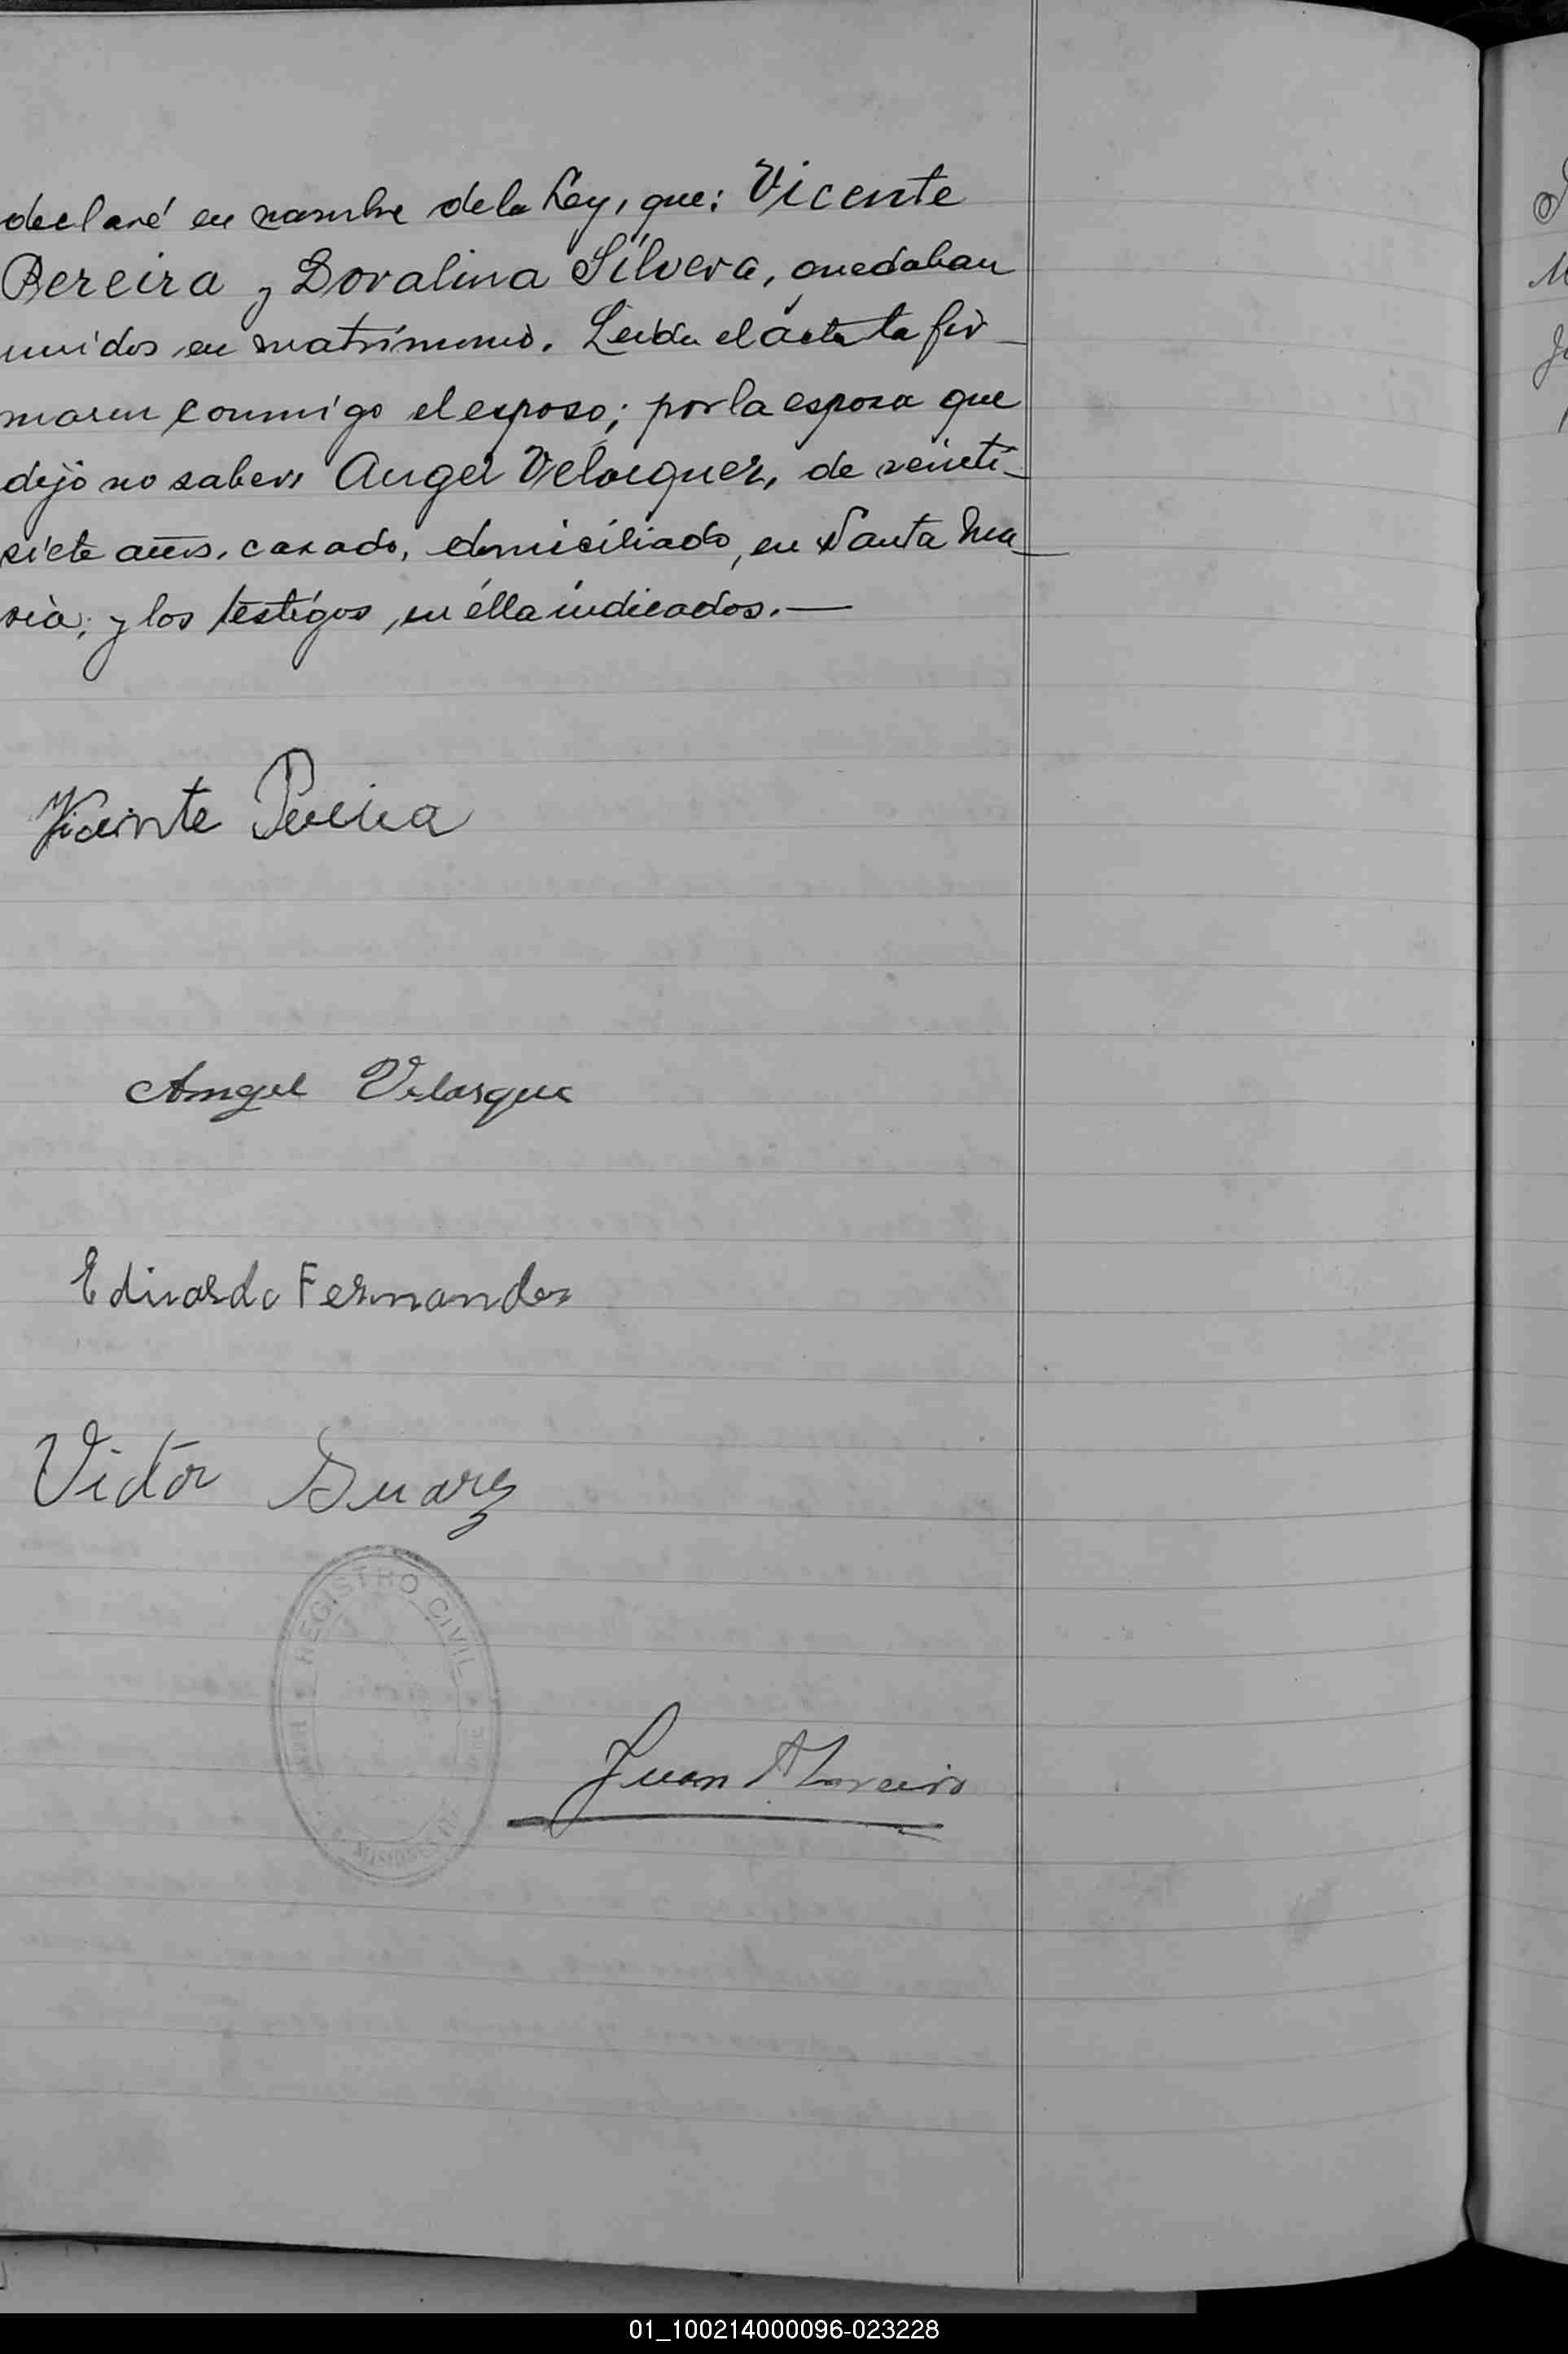 declaré en nombre de la Ley, que: Vicente
Pereira y Doralina Silvera, quedaban
unidos en matrimonio. Leida el ácta la fir_
maron conmigo el esposo; por la esposa que
dijo no saber, Angel Velasquez, de veinti_
siete años, casado, domiciliado, en Santa Ma_
ria; y los testigos, en élla indicados.—
Vicente Pereira
Angel Velasquez
Eduardo Fernandez
Victor Suarez
REGISTRO CIVIL
MISIONES
Juan
01_100214000096-023228